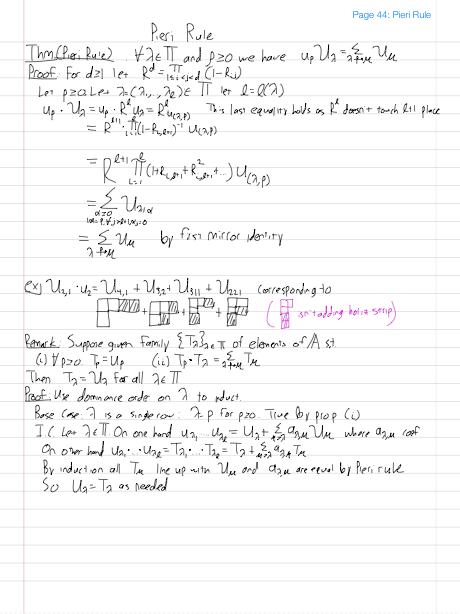 Page 44: Pieri Rule
Pieri Rule
Thm (Pieri Rule) ∀ λ ∈ Π and p ≥ 0 we have u_p U_λ = Σ_{λ -p→ μ} U_μ
Proof: For d ≥ 1 let R^d = Π_{1≤i<j≤d} (1-R_{ij})
Let p ≥ 0. Let λ = (λ_1, ..., λ_ℓ) ∈ Π let ℓ = ℓ(λ)
u_p · U_λ = u_p · R^ℓ u_λ = R^ℓ u_{(λ,p)} This last equality holds as R^ℓ doesn't touch ℓ+1 place
= R^{ℓ+1} · Π_{i=1}^{ℓ} (1-R_{i,ℓ+1})^{-1} u_{(λ,p)}
= R^{ℓ+1} Π_{i=1}^{ℓ} (1+R_{i,ℓ+1}+R^2_{i,ℓ+1}+...) u_{(λ,p)}
= Σ U_{λ+α}
α≥0
|α|=p, ∀ j>ℓ+1 α_j=0
= Σ_{λ -p→ μ} U_μ by first mirror identity
ex) U_{2,1} · u_2 = U_{4,1} + U_{3,2} + U_{311} + U_{221} corresponding to
+ + + ( isn't adding horiz strip)
Remark: Suppose given family {T_λ}_{λ∈Π} of elements of A st.
(i) ∀ p ≥ 0 T_p = u_p (ii) T_p · T_λ = Σ_{λ -p→ μ} T_μ
Then T_λ = U_λ for all λ ∈ Π
Proof: Use dominance order on λ to induct.
Base Case: λ is a single row: λ = p for p≥0. True by prop (i)
I.C. Let λ ∈ Π. On one hand u_{λ_1} ... u_{λ_ℓ} = U_λ + Σ_{μ>λ} a_{λμ} U_μ where a_{λμ} coef
On other hand u_{λ_1} ... u_{λ_ℓ} = T_{λ_1} ... T_{λ_ℓ} = T_λ + Σ_{μ>λ} a_{λμ} T_μ
By induction all T_μ line up with U_μ and a_{λμ} are equal by Pieri rule
So U_λ = T_λ as needed